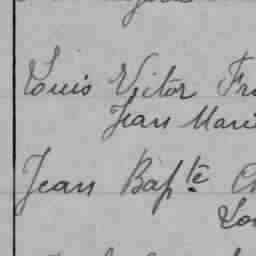 Louis Victor Fr
Jean Marie
Jean Bapte. Ch
Lou